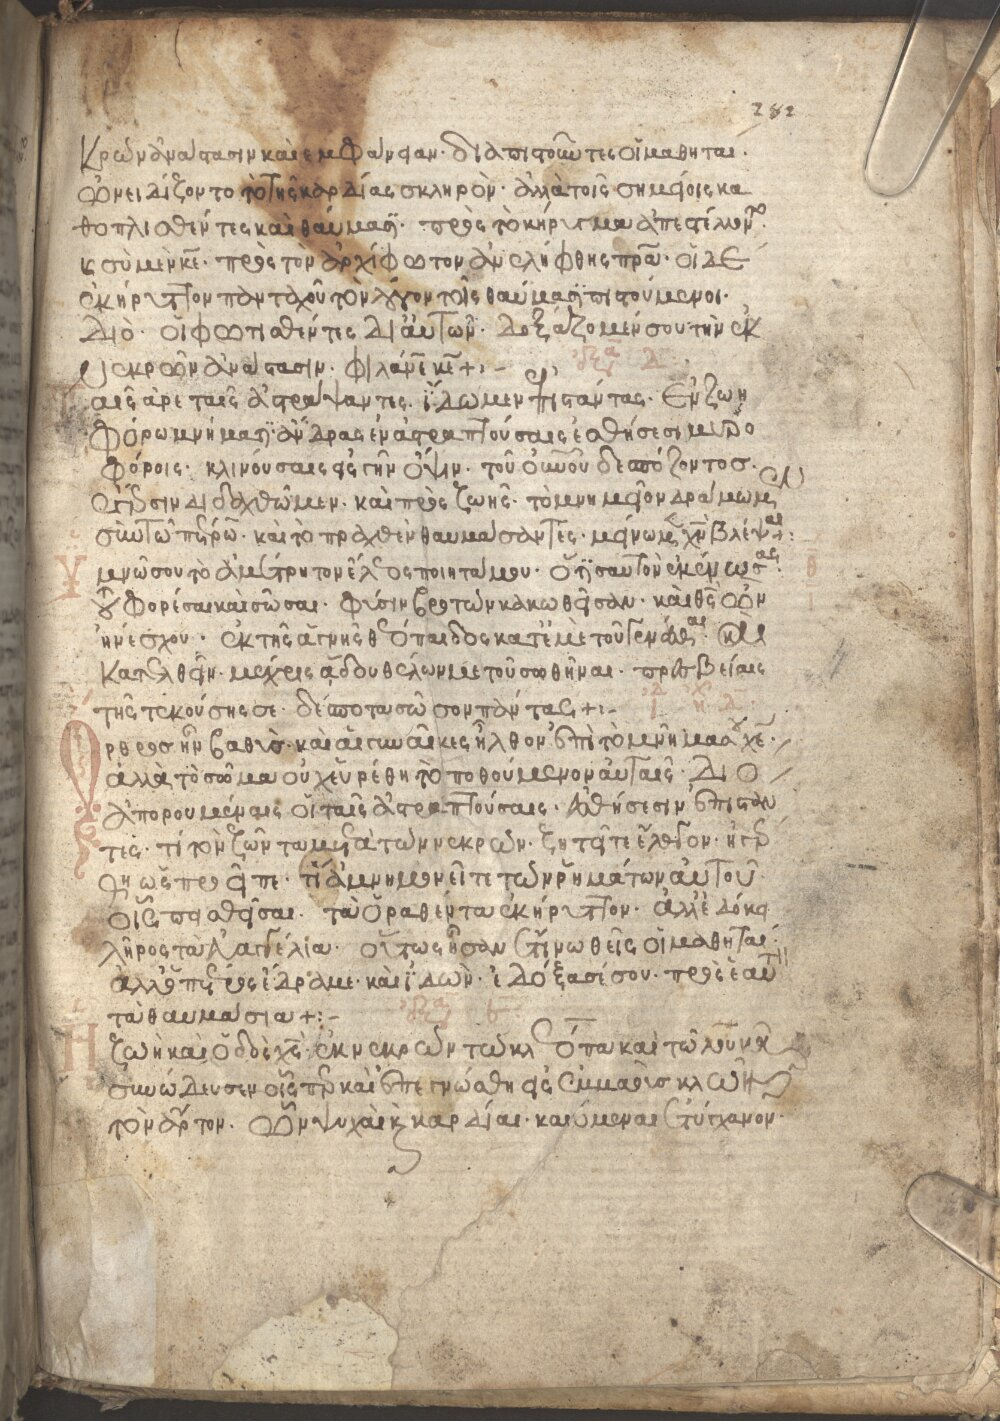 282
κρῶν ἀνάστασιν καὶ ἐμφάνειαν. διὸ ἀπιστοῦντες οἱ μαθηταὶ.
ὠνειδίζοντο τὸ τῆς καρδίας σκληρὸν. ἀλλὰ τοῖς σημείοις κα
θοπλισθέντες καὶ θαύμασι. πρὸς τὸ κήρυγμα ἀπεστέλοντο.
κ σὺ μὲν κε. πρὸς τὸν ἀρχίφωτον ἀνελήφθης πρα. οἱ δὲ
ἐκήρυττον πανταχοῦ τὸν λόγον τοῖς θαύμασι πιστούμενοι.
Διὸ. οἱ φωτισθέντες δι αὐτῶν. δοξάζομέν σου τὴν ἐκ
νεκρῶν ἀνάστασιν. φιλάνε κε +:-
δ
αῖς ἀρεταῖς ἀστράψαντες. ἴδωμεν ἐπιστάντας. ἐν ζωη
φόρω μνήματι. ἄνδρας ἐν ἀστραπτούσαις ἐσθήσεσι μυρο
φόροις. κλινούσαις εἰς γῆν ὄψιν. τοῦ οὐνοῦ δεσπόζοντος.
ἔγερσιν διδαχθῶμεν. καὶ πρὸς ζωῆς. τὸ μνημεῖον δράμωμεν
σὺν τῶ πέτρω. καὶ τὸ πραχθὲν θαυμάσαντες. μείνωμεν χν βλέψαι +:
μνῶ σου τὸ ἀμέτρητον ἔλεος ποιητά μου. ὅτι σαυτὸν ἐκένωσας.
θ
φορέσαι καὶ σῶσαι. φύσιν βροτῶν κακωθεῖσαν. καὶ θς ὢν
ἠνέσχου. ἐκ τῆς ἁγνῆς θεόπαιδος κατ ἐμὲ τοῦ γενέσθαι. καὶ
κατελθεῖν. μέχρις ἅδου θέλων με τοῦ σωθῆναι. πρεσβείαις
τῆς τεκούσης σε. δέσποτα σῶσον πάντας +:-
ρθρος ἦν βαθὺς. καὶ αἱ γυναῖκες ἦλθον ἐπὶ τὸ μνῆμα σου χε.
ἀλλὰ τὸ σῶμα οὐχ εὑρέθη τὸ ποθούμενον αὐταῖς. Διὸ
ἀπορουμέναις οἱ ταῖς ἀστραπτούσαις. ἐσθήσεσιν ἐπιστάν
τες. τί τὸν ζῶντα μετὰ τῶν νεκρῶν. ζητεῖτε ἔλεγον. ἠγέρ
θη ὡς προεῖπε. τί ἀμνημονεῖτε τῶν ῥημάτων αὐτοῦ.
οἷς πεισθεῖσαι. τὰ ὁραθέντα ἐκήρυττον. ἀλλ ἐδόκει
λῆρος τὰ εὐαγγέλια. οὕτως ἦσαν ἔτι νωθεῖς οἱ μαθηταί.
ἀλλ ὁ πέτρος ἔδραμε. καὶ ἰδὼν. ἐδόξασέ σου. πρὸς ἑαυτὸν
τὰ θαυμάσια +:-
ζωὴ καὶ ὁδὸς χς. ἐκ νεκρῶν τῶ κλεόπα καὶ τῶ λουκᾶ
συνώδευσεν οἷς περ καὶ ἐπεγνώσθη εἰς ἐμμαοὺς κλῶν
τὸν ἄρτον. ὧν ψυχαὶ κ καρδίαι. καιόμεναι ἐτύγχανον.